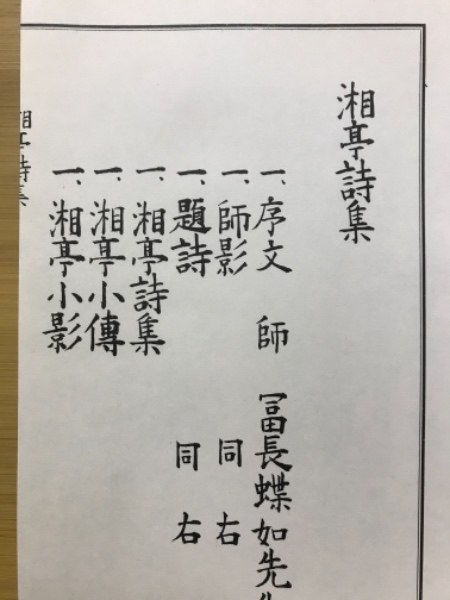 湘亭詩集
一、序文 師 冨長蝶如先生
一、師影 同右
一、題詩 同右
一、湘亭詩集
一、湘亭小傳
一、湘亭小影
湘亭詩集